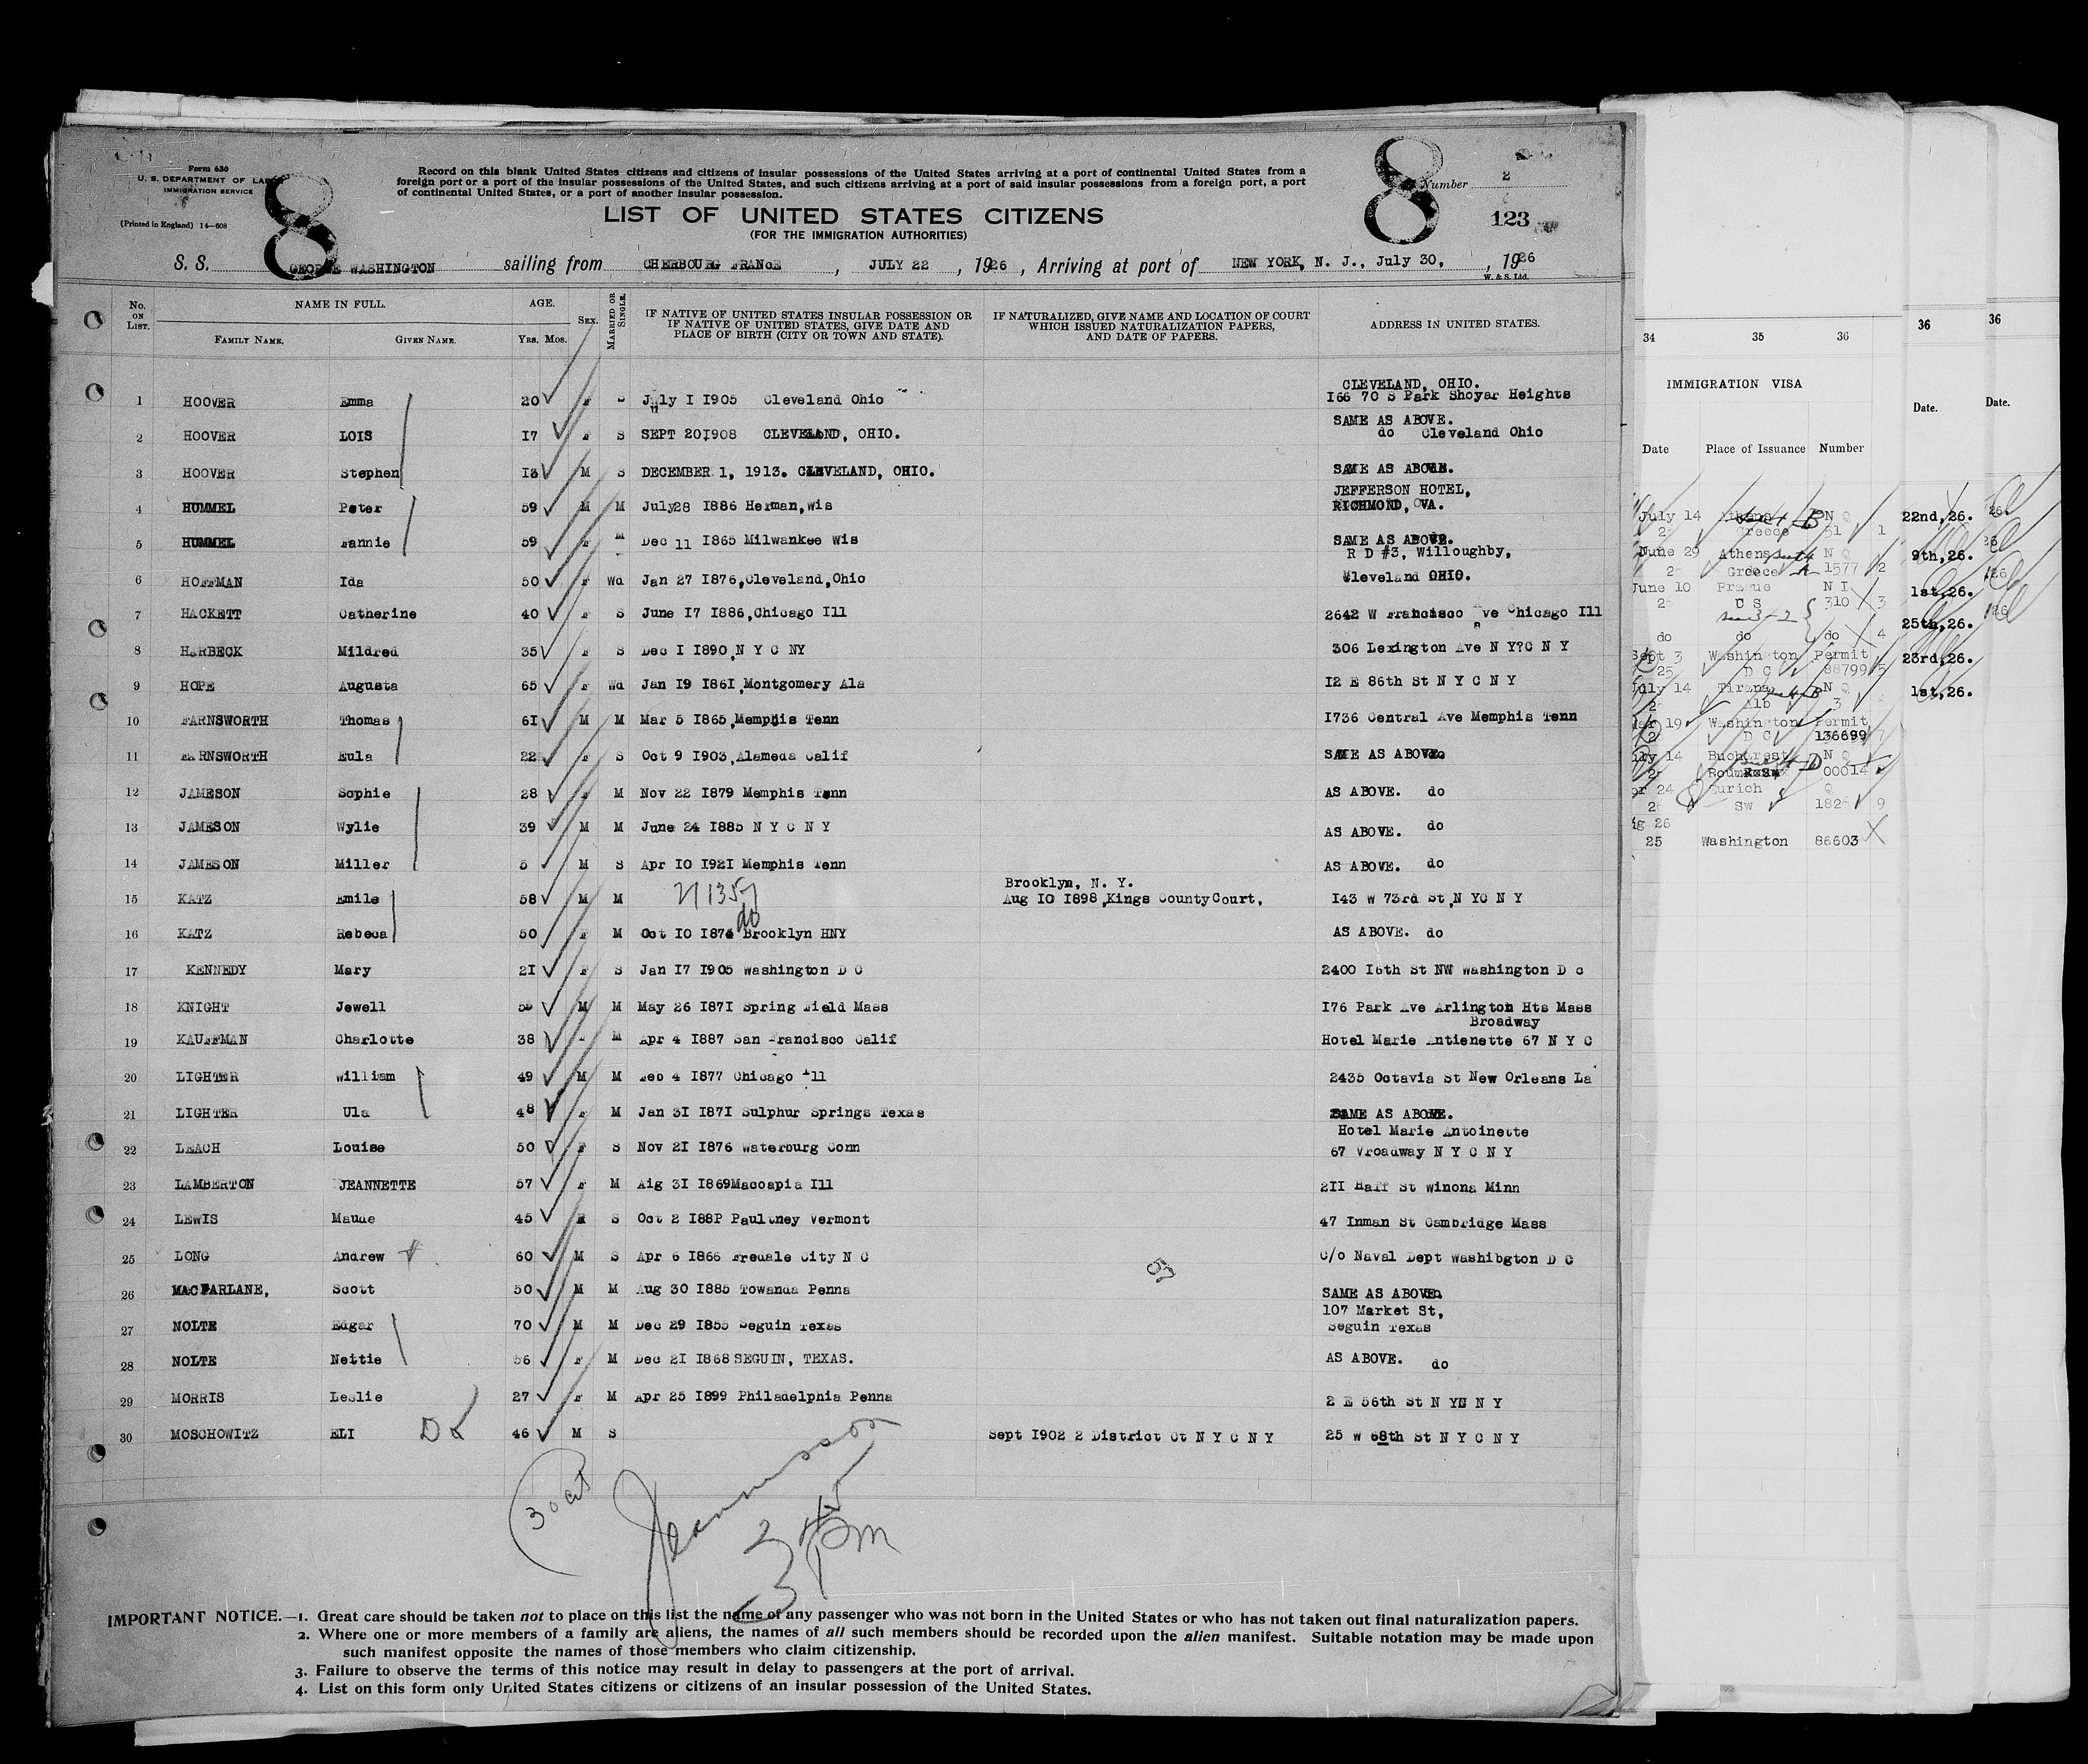 Form 630
U. S. DEPARTMENT OF LABOR
IMMIGRATION SERVICE
(Printed in England) 14—608
8
Record on this blank United States citizens and citizens of insular possessions of the United States arriving at a port of continental United States from a
foreign port or a port of the insular possessions of the United States, and such citizens arriving at a port of said insular possessions from a foreign port, a port
of continental United States, or a port of another insular possession.
8
Number 2
123
LIST OF UNITED STATES CITIZENS
(FOR THE IMMIGRATION AUTHORITIES)
S. S. GEORGE WASHINGTON sailing from CHERBOURG FRANCE, JULY 22, 1926, Arriving at port of NEW YORK, N. J., July 30, , 1926
W. & S. Ltd.
No. ON LIST. NAME IN FULL. FAMILY NAME. GIVEN NAME. AGE. Yrs. Mos. SEX. MARRIED OR SINGLE. IF NATIVE OF UNITED STATES INSULAR POSSESSION OR IF NATIVE OF UNITED STATES, GIVE DATE AND PLACE OF BIRTH (CITY OR TOWN AND STATE). IF NATURALIZED, GIVE NAME AND LOCATION OF COURT WHICH ISSUED NATURALIZATION PAPERS, AND DATE OF PAPERS. ADDRESS IN UNITED STATES.
CLEVELAND, OHIO.
1 HOOVER Emma 20 F S July I I905 Cleveland Ohio I66 70 S Park Shoyar Heights
SAME AS ABOVE.
2 HOOVER LOIS I7 F S SEPT 20I908 CLEVELAND, OHIO. do Cleveland Ohio
3 HOOVER Stephen I3 M S DECEMBER 1, 1913. CLEVELAND, OHIO. SAME AS ABOVE.
JEFFERSON HOTEL,
4 HUMMEL Peter 59 M M July28 I886 Herman,Wis RICHMOND, VA.
5 HUMMEL Fannie 59 F M Dec 11 I865 Milwankee Wis SAME AS ABOVE.
R D #3, Willoughby,
6 HOFFMAN Ida 50 F Wd Jan 27 I876,Cleveland,Ohio Cleveland OHIO.
7 HACKETT Catherine 40 F S June I7 I886,Chicago Ill 2642 W Francisco Ave Chicago Ill
8 HARBECK Mildred 35 F S Dec I I890,N Y C NY 306 Lexington Ave N Y?C N Y
9 HOPE Augusta 65 F Wd Jan I9 I86I,Montgomery Ala I2 E 86th St N Y C N Y
10 FARNSWORTH Thomas 6I M M Mar 5 I865,Memphis Tenn I736 Central Ave Memphis Tenn
11 FARNSWORTH Eula 22 F S Oct 9 I903,Alameda Calif SAME AS ABOVE.
12 JAMESON Sophie 28 F M Nov 22 I879 Memphis Tenn AS ABOVE. do
13 JAMESON Wylie 39 M M June 24 I885 N Y C N Y AS ABOVE. do
14 JAMESON Miller 5 M S Apr I0 I92I Memphis Tenn AS ABOVE. do
Brooklyn, N. Y.
15 KATZ Emile 58 M M Aug I0 I898,Kings County Court, I43 W 73rd St,N YC N Y
do
16 KATZ Rebeca 50 F M Oct I0 I874 Brooklyn HNY AS ABOVE. do
17 KENNEDY Mary 2I F S Jan I7 I905 Washington D C 2400 I6th St NW Washington D c
18 KNIGHT Jewell M M May 26 I87I Spring Field Mass I76 Park Ave Arlington Hts Mass
Broadway
19 KAUFFMAN Charlotte 38 M Apr 4 I887 San Francisco Calif Hotel Marie Antienette 67 N Y C
20 LIGHTER William 49 M M Feb 4 I877 Chicago Ill 2435 Octavia St New Orleans La
21 LIGHTER Ula 48 F M Jan 3I I87I Sulphur Springs Texas SAME AS ABOVE.
Hotel Marie Antoinette
22 LEACH Louise 50 F S Nov 2I I876 Waterburg Conn 67 Vroadway N Y C N Y
23 LAMBERTON JEANNETTE 57 F M Aig 3I I869Macoapia Ill 2II Haff St Winona Minn
24 LEWIS Maude 45 S Oct 2 I88P Paultney Vermont 47 Inman St Cambridge Mass
25 LONG Andrew 60 M S Apr 6 I866 Fredale City N C C/o Naval Dept Washibgton D C
57
26 MACFARLANE, Scott 50 M M Aug 30 I885 Towanda Penna SAME AS ABOVE.
107 Market St,
27 NOLTE Edgar 70 M M Dec 29 I855 Seguin Texas Seguin Texas
28 NOLTE Nettie 56 F M Dec 2I I868 SEGUIN, TEXAS. AS ABOVE. do
29 MORRIS Leslie 27 F M Apr 25 I899 Philadelphia Penna 2 E 56th St N YC N Y
30 MOSCHOWITZ ELI 46 M S Sept I902 2 District Ct N Y C N Y 25 W 68th St N Y C N Y
3 pm
IMPORTANT NOTICE.—1. Great care should be taken not to place on this list the name of any passenger who was not born in the United States or who has not taken out final naturalization papers.
2. Where one or more members of a family are aliens, the names of all such members should be recorded upon the alien manifest. Suitable notation may be made upon
such manifest opposite the names of those members who claim citizenship.
3. Failure to observe the terms of this notice may result in delay to passengers at the port of arrival.
4. List on this form only United States citizens or citizens of an insular possession of the United States.
34 35 36
IMMIGRATION VISA
Date Place of Issuance Number
July 14 Athens N Q
Greece 51 1
June 29 Athens N Q
Greece 1577 2
June 10 Prague N I
C S 310 3
do do do 4
Sept 3 Washington Permit
25 D C 88799 5
July 14 Tirana N Q
Alb 3
Mar 19 Washington Permit
D C 136699 7
Bucharest N Q
00014
Zurich Q
Sw 9
26
25 Washington 86603
36
Date.
22nd,26.
9th,26.
1st,26.
25th,26.
23rd,26.
1st,26.
36
Date.